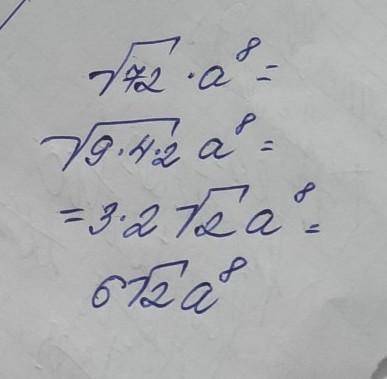 √72 · a⁸ =
√9·4·2 a⁸ =
= 3·2 √2 a⁸ =
6√2 a⁸